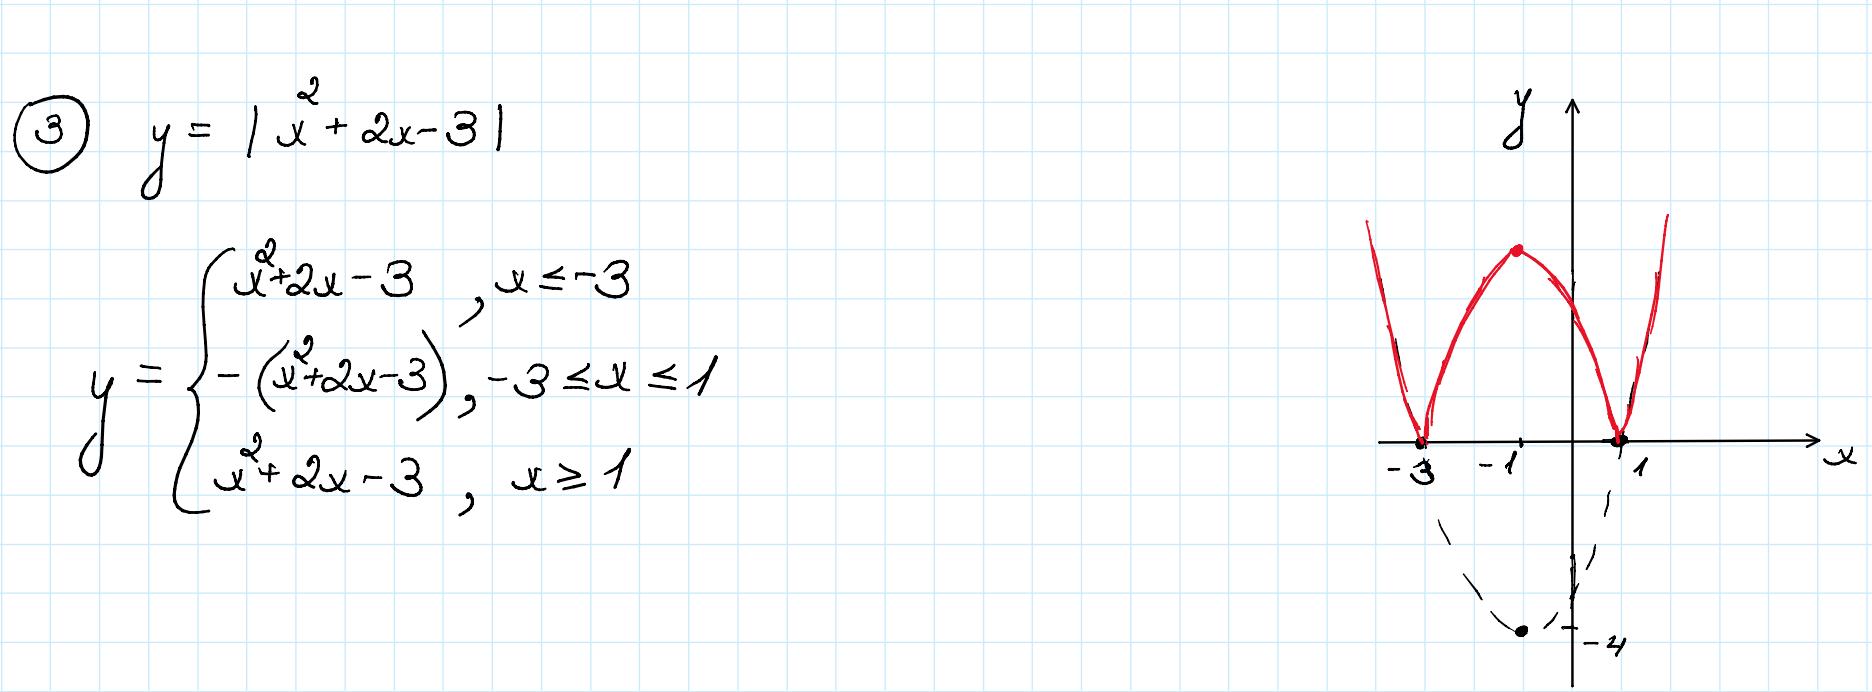 ③ y = | x² + 2x - 3 |
y = { x² + 2x - 3 , x ≤ -3
- (x² + 2x - 3) , -3 ≤ x ≤ 1
x² + 2x - 3 , x ≥ 1
y
-3 -1 1 x
-4